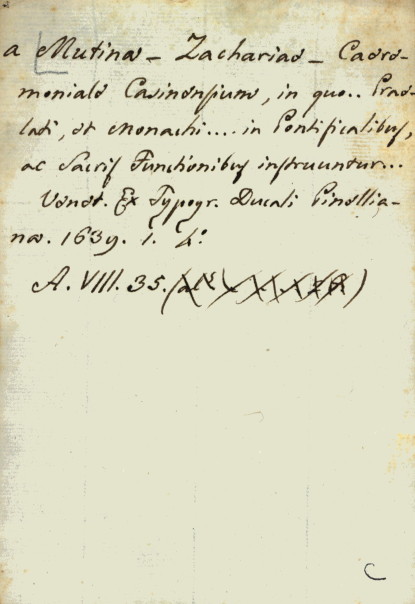 a Mutina - Zacharias - Caere-
moniale Casinensium, in quo.. Prae-
lati, et Monachi.... in Pontificalibus,
ac Sacris Functionibus instruuntur...
Venet. Ex Typogr. Ducali Pinellia-
na. 1639. 1. 4º
A. VIII. 35. (
)
C